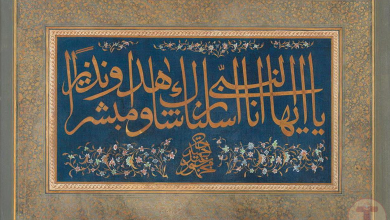 يا ايها النبى انا ارسلناك شاهدا ومبشرا ونذيرا